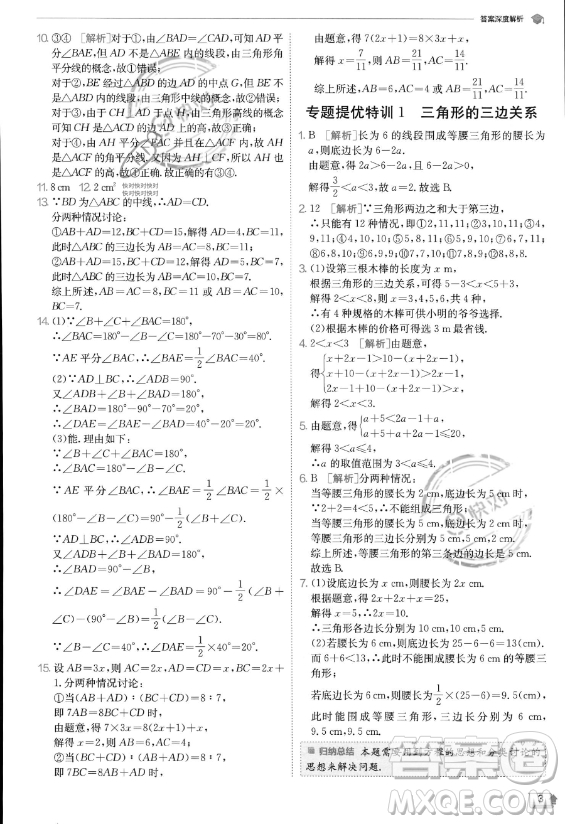 答案深度解析
10. ③④ [解析]对于①,由∠BAD=∠CAD,可知 AD
平分∠BAE,但 AD 不是△ABE 内的线段,由三角形角
平分线的概念,故①错误;
对于②,BE 经过△ABD 的边 AD 的中点 G,但 BE 不
是△ABD 内的线段,由三角形中线的概念,故②错误;
对于③,由于 CH⊥AD 于点 H,由三角形高线的概念
可知 CH 是△ACD 的边 AD 上的高,故③正确;
对于④,由 AH 平分∠FAC 并且在△ACF 内,故 AH
是△ACF 的角平分线.又因为 AH⊥CF,所以 AH 也
是△ACF 的高,故④正确.
11. 8 cm 12. 2 cm²
13. ∵BD 为△ABC 的中线,∴AD=CD.
分两种情况讨论:
①AB+AD=12,BC+CD=15,解得 AD=4,BC=11,
此时△ABC 的三边长为 AB=AC=8,BC=11;
②AB+AD=15,BC+CD=12,解得 AD=5,BC=7,
此时△ABC 的三边长为 AB=AC=10,BC=7.
综上所述,AB=AC=8,BC=11或 AB=AC=10,
BC=7.
14. (1)∵∠B+∠C+∠BAC=180°,
∴∠BAC=180°-∠B-∠C=180°-70°-30°=80°.
∵AE 平分∠BAC,∴∠BAE=1/2∠BAC=40°.
(2)∵AD⊥BC,∴∠ADB=90°.
又∠ADB+∠B+∠BAD=180°,
∴∠BAD=90°-∠B=90°-70°=20°,
∴∠DAE=∠BAE-∠BAD=40°-20°=20°.
(3)能. 理由如下:
∵∠B+∠C+∠BAC=180°,
∴∠BAC=180°-∠B-∠C.
∵AE 平分∠BAC,∴∠BAE=1/2∠BAC=1/2×
(180°-∠B-∠C)=90°-1/2(∠B+∠C).
∵AD⊥BC,∴∠ADB=90°.
又∠ADB+∠B+∠BAD=180°,
∴∠BAD=90°-∠B,
∴∠DAE=∠BAE-∠BAD=90°-1/2(∠B+
∠C)-(90°-∠B)=1/2(∠B-∠C).
∵∠B-∠C=40°,∴∠DAE=1/2×40°=20°.
15. 设 AB=3x,则 AC=2x,AD=CD=x,BC=2x+
1.分两种情况讨论:
①当(AB+AD)∶(BC+CD)=8∶7,
即 7(AB+AD)=8(BC+CD)时,
由题意得 7(3x+x)=8(2x+1+x),
解得 x=2,则 AB=6,AC=4;
②当(BC+CD)∶(AB+AD)=8∶7,
即 7(BC+CD)=8(AB+AD)时,
由题意得 7(2x+1+x)=8×(3x+x),
解得 x=7/11,则 AB=21/11,AC=14/11.
综上所述,AB=6,AC=4 或 AB=21/11,AC=14/11.
专题提优特训1 三角形的三边关系
1. B [解析]长为 6 的线段围成等腰三角形的腰长为
a,则底边长为 6-2a.
由题意得 2a>6-2a,且 6-2a>0,
解得3/2<a<3,故选 B.
2. 12 [解析]∵三角形两边之和大于第三边,
∴只能有 12 种情况,即①2,11,11;②3,10,11;③4,
9,11;④4,10,10;⑤5,8,11;⑥5,9,10;⑦6,7,11;
⑧6,8,10;⑨6,9,9;⑩7,7,10;⑪7,8,9;⑫8,8,8.
3. (1)设第三根木棒的长度为 x m,
根据三角形的三边关系,得 5-3<x<5+3,
解得 2<x<8.
由题意,得 x=3,4,5,6,共 4 种,
∴有 4 种规格的木棒可供小明的爷爷选择.
(2)根据木棒的价格可得选 3 m 最省钱.
4. 2<x<3 [解析]由题意,
得{x+2x-1>10-(x-2),
x+(10-2x)>2x-1,
2x-1+10-2x>x,
解得 2<x<3.
5. 由题意,得{a+5<2a-1+a,
a+5+a+2a-1≤20,
解得 3<a≤4.
∴a 的取值范围为 3<a≤4.
6. B [解析]分两种情况:
当等腰三角形的腰长为 2 cm,底边长为 5 cm 时,
∵2+2=4<5,∴不能组成三角形;
当等腰三角形的腰长为 5 cm,底边长为 2 cm 时,
能组成等腰三角形.
综上所述,等腰三角形的第三条边的边长是 5 cm.
故选 B.
7. (1)设底边长为 x cm,则腰长为 2x cm.
根据题意,得 2x+2x+x=25,
解得 x=5,∴2x=10.
∴三角形各边长分别为 10 cm,10 cm,5 cm.
(2)若腰长为 6 cm,则底边长为 25-6-6=13(cm).
而 6+6<13,故不能围成腰长为 6 cm 的等腰三
角形;
若底边长为 6 cm,则腰长为1/2×(25-6)=9.5(cm),
此时能围成等腰三角形,三边长分别为 6 cm,
9.5 cm,9.5 cm.
归纳总结 本题需要用到方程的思想和分类讨论的
思想来解决问题.
3
MXQE.COM